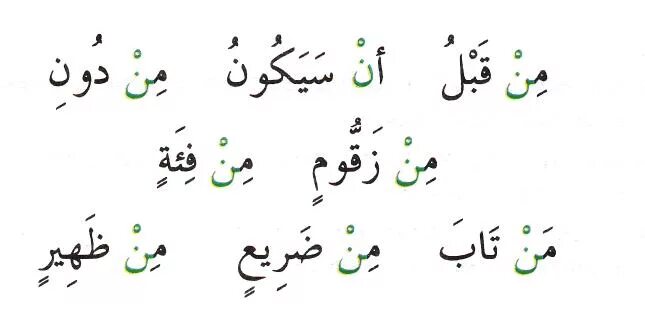 مِنْ قَبْلُ أنْ سَيَكُونُ مِنْ دُونِ
مِنْ زَقُّومٍ مِنْ فِئَةٍ
مَنْ تَابَ مِنْ ضَرِيعٍ مِنْ ظَهِيرٍ